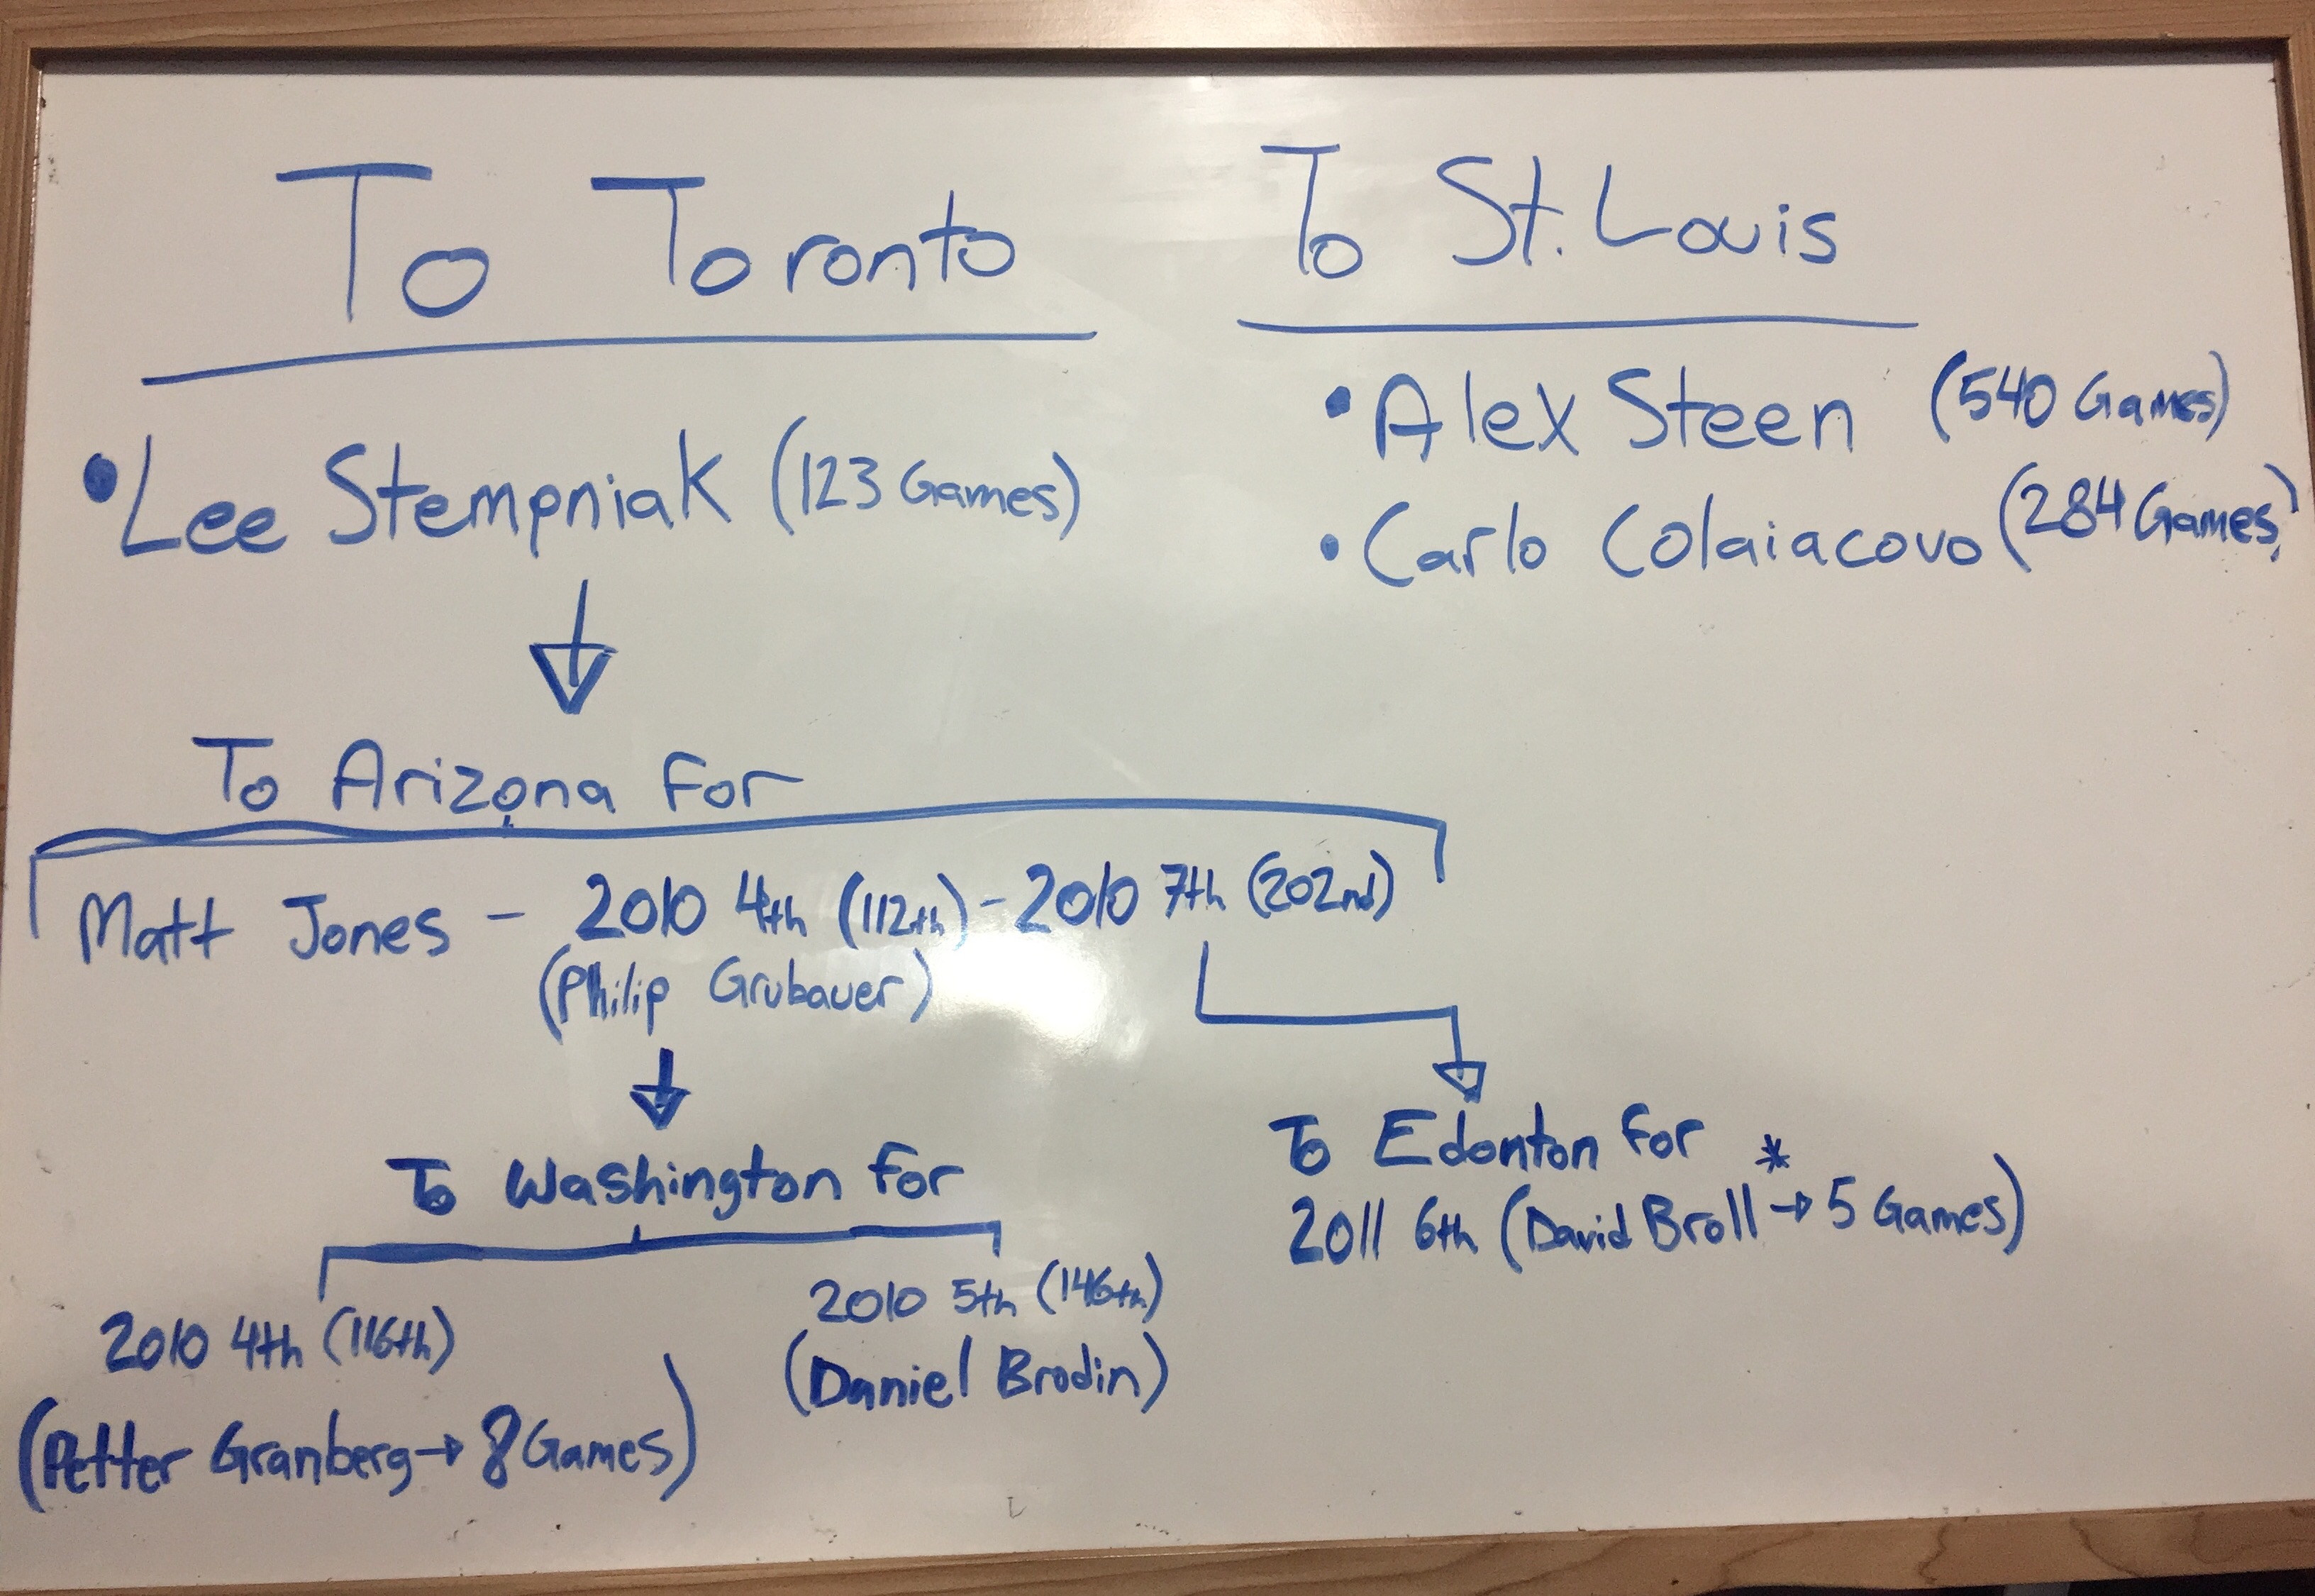 To Toronto
• Lee Stempniak (123 Games)
To Arizona For
Matt Jones - 2010 4th (112th) - 2010 7th (202nd)
(Philip Grubauer)
To Washington for
2010 4th (116th)
(Petter Granberg → 8 Games)
2010 5th (146th)
(Daniel Brodin)
To Edonton for
2011 6th (David Broll * → 5 Games)
To St. Louis
• Alex Steen (540 Games)
• Carlo Colaiacovo (284 Games)